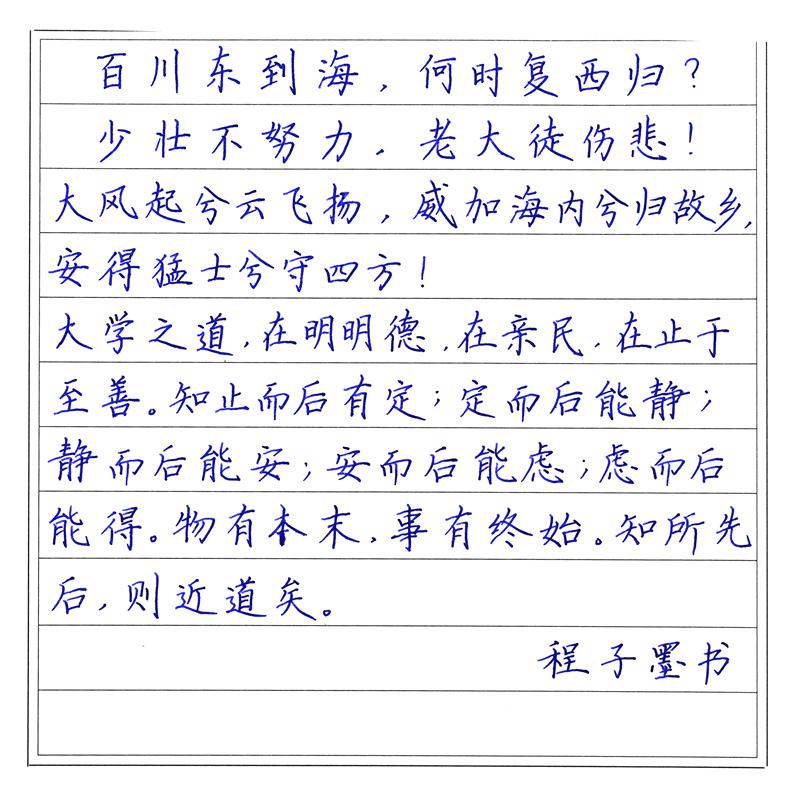 百川东到海，何时复西归？
少壮不努力，老大徒伤悲！
大风起兮云飞扬，威加海内兮归故乡，
安得猛士兮守四方！
大学之道，在明明德，在亲民，在止于
至善。知止而后有定；定而后能静；
静而后能安；安而后能虑；虑而后
能得。物有本末，事有终始。知所先
后，则近道矣。
程子墨书